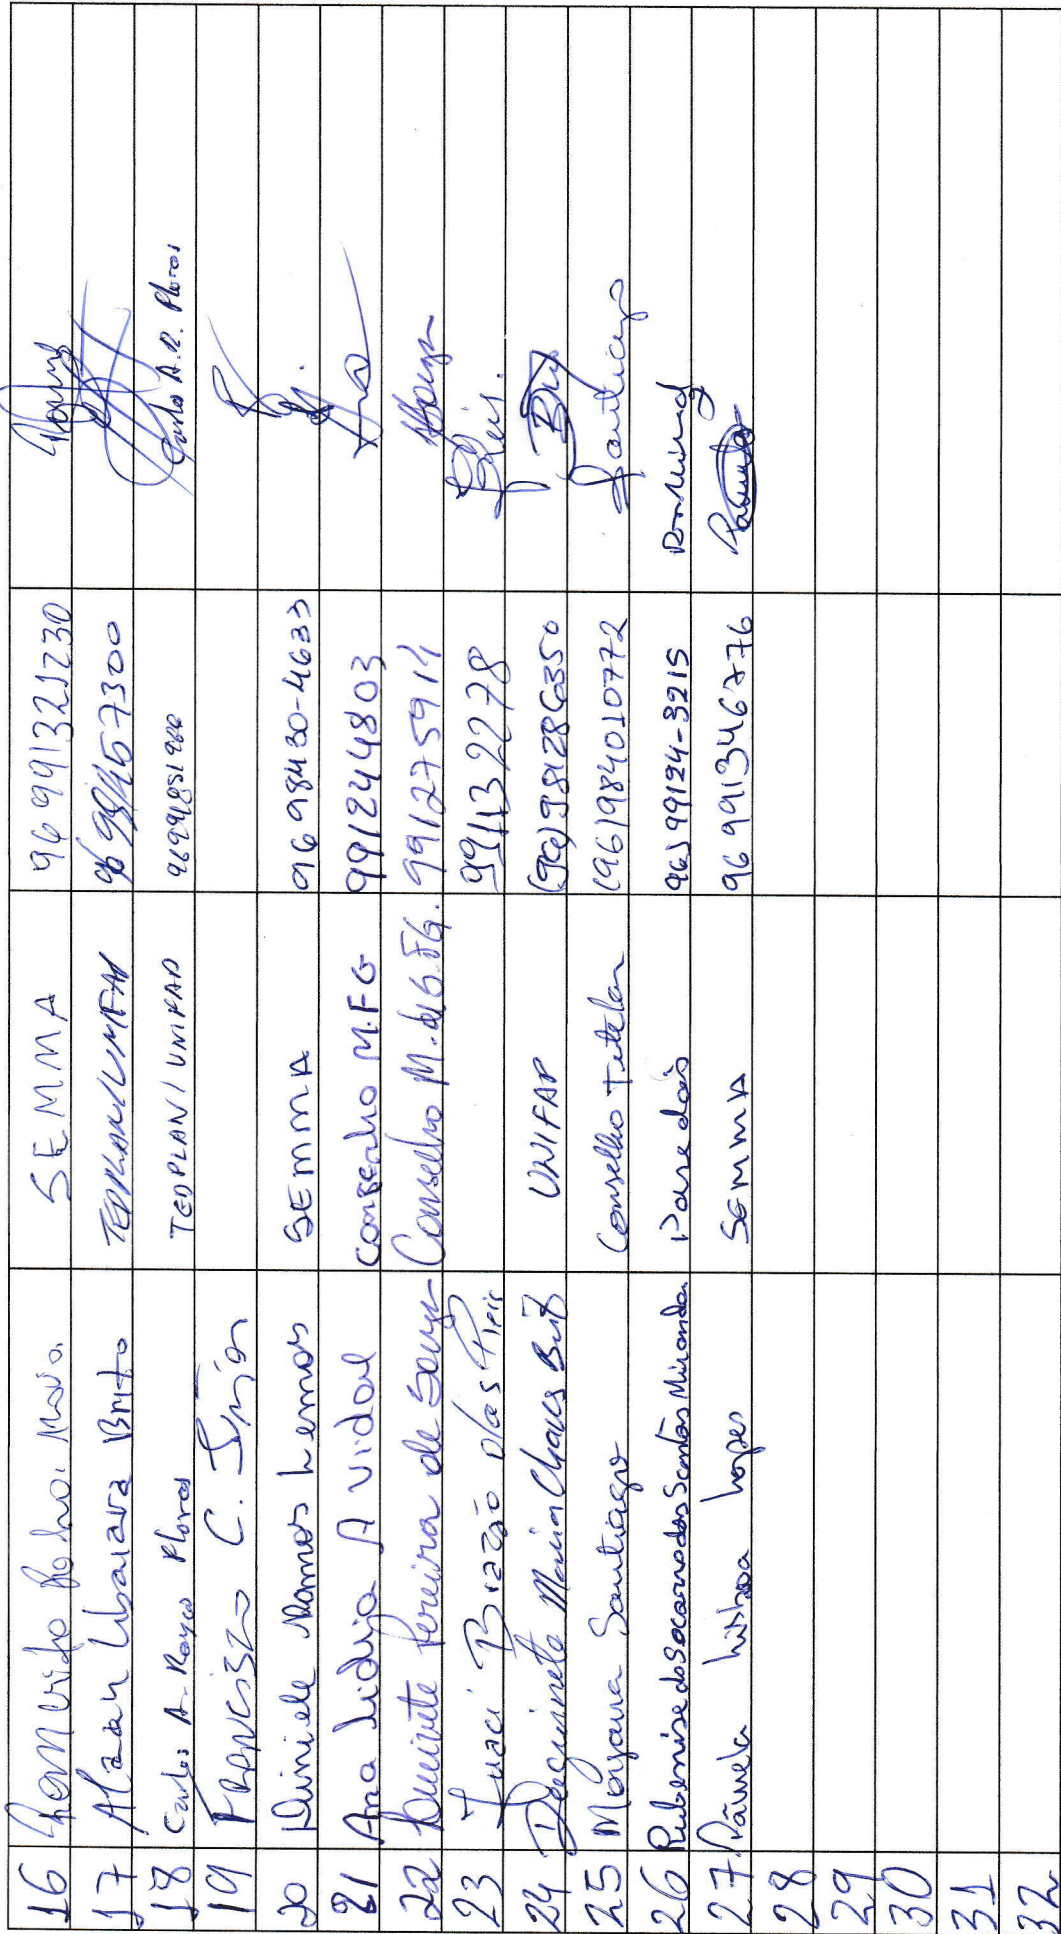 16 SEMMA 96 991321230
17 Alaan Ubaiara Brito TEDPLAN/UNIFAP
18 Carlos A. Rayco Flores TEDPLAN/UNIFAP Carlos A.R. Flores
19 Francisco C. Júnior
20 Diniele Ramos Lemos SEMMA 96 98430-4633
21 Ana Lidya A Vidal Conselho M.FG 991244803 Ana
22 Pereira de Souza Conselho M. 991275914
23 Juaci Brazão dos Reis 99113 2278 Reis.
24 Maria Chaves Brito UNIFAP (96) 981286350
25 Mayara Santiago Conselho Tutelar (96) 984010772 Santiago
26 Rubenise do Socorro dos Santos Miranda Paredão 96) 99124-3215
27 Pâmela Lisboa Lopes SEMMA 96 991346776
28
29
30
31
32